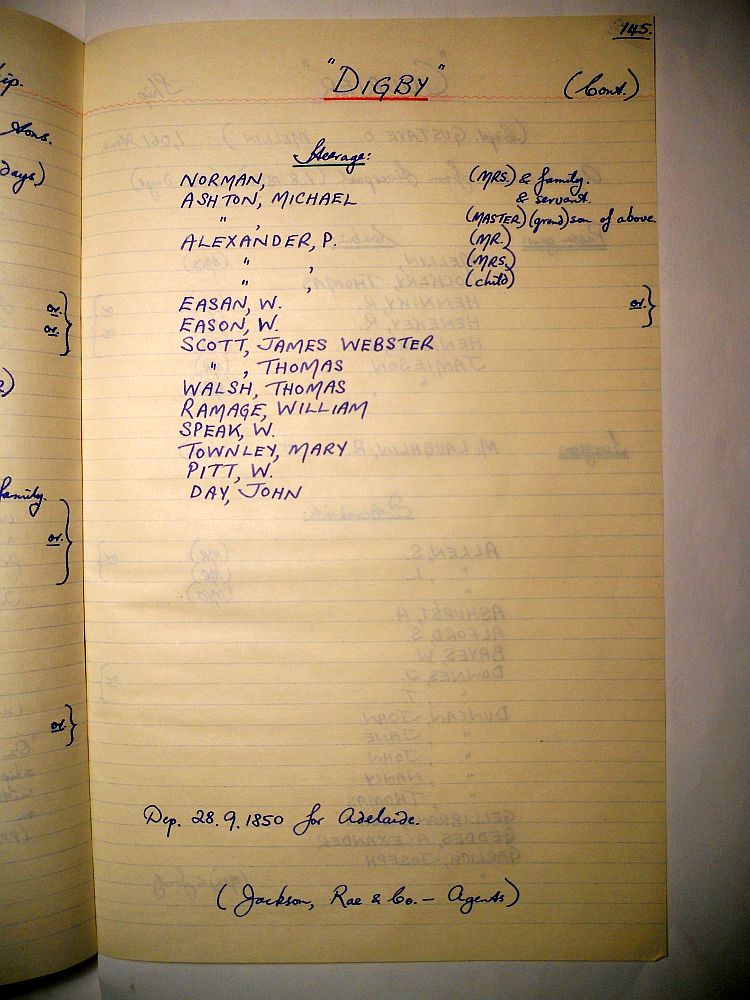 145.
"DIGBY" (Cont.)
Steerage:
NORMAN, (MRS.) & family.
ASHTON, MICHAEL & servant.
" , (MASTER) (grand) son of above.
ALEXANDER, P. (MR.)
" , (MRS.)
" , (child)
or. } EASAN, W. or. }
or. } EASON, W.
SCOTT, JAMES WEBSTER
" , THOMAS
WALSH, THOMAS
RAMAGE, WILLIAM
SPEAK, W.
TOWNLEY, MARY
PITT, W.
DAY, JOHN
Dep. 28.9.1850 for Adelaide.
(Jackson, Rae & Co. – Agents)
tons.
days)
family.
or. }
or. }